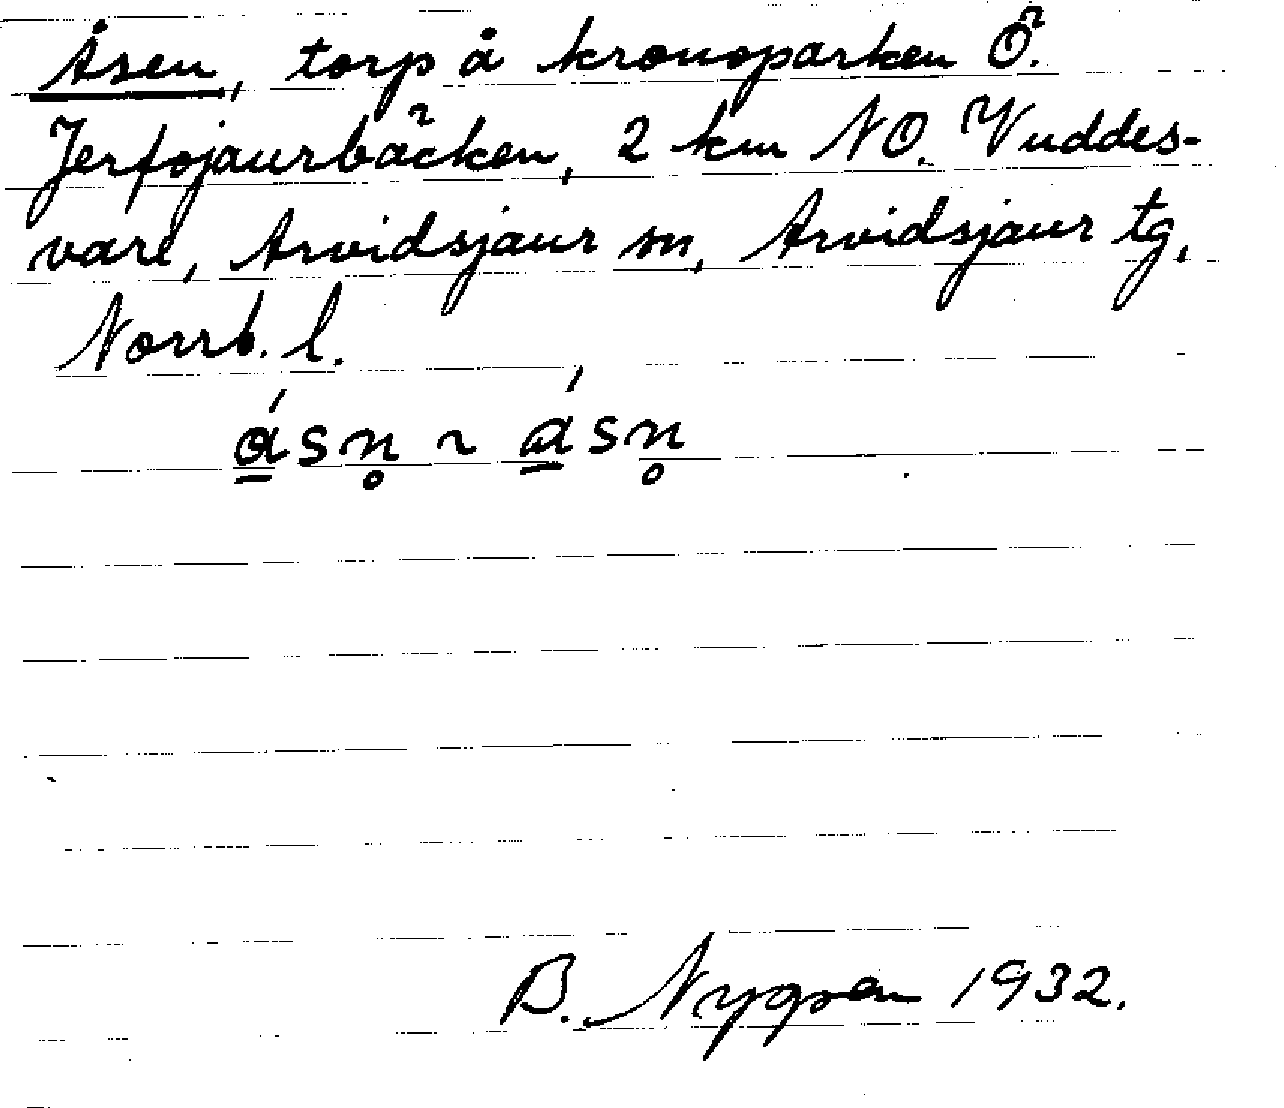 Åsen, torp å kronoparken Ö.
Jerfojaurbäcken, 2 km NO. Vuddes-
vare, Arvidsjaur sn, Arvidsjaur tg,
Norrb. l.
ɑ̠́sn̥ ~ á̠sn̥
B. Nygren 1932.